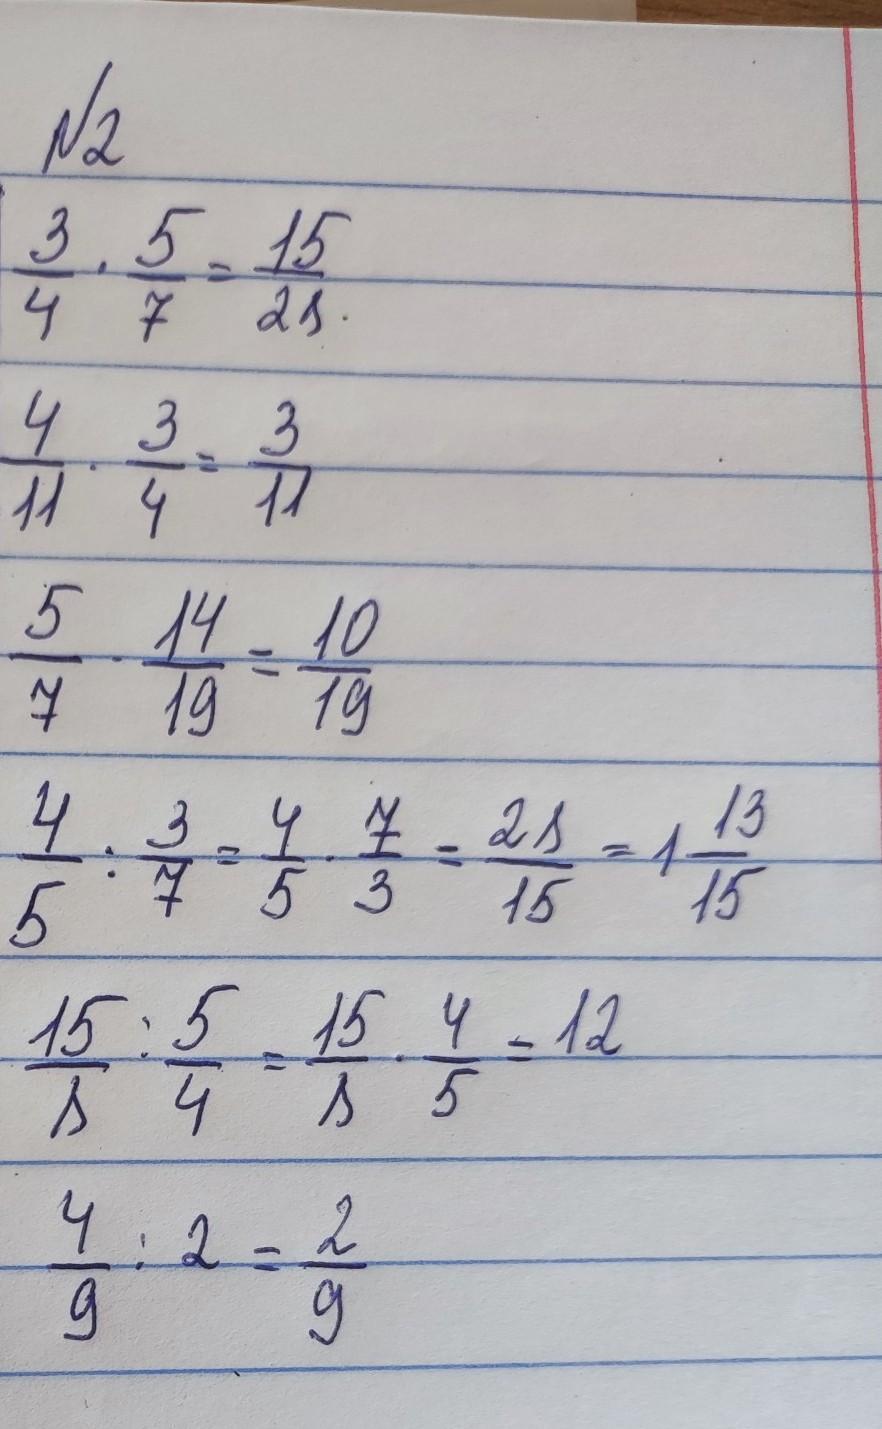 №2
3/4 · 5/7 = 15/28.
4/11 · 3/4 = 3/11
5/7 · 14/19 = 10/19
4/5 : 3/7 = 4/5 · 7/3 = 28/15 = 1 13/15
15/8 : 5/4 = 15/8 · 4/5 = 12
4/9 : 2 = 2/9